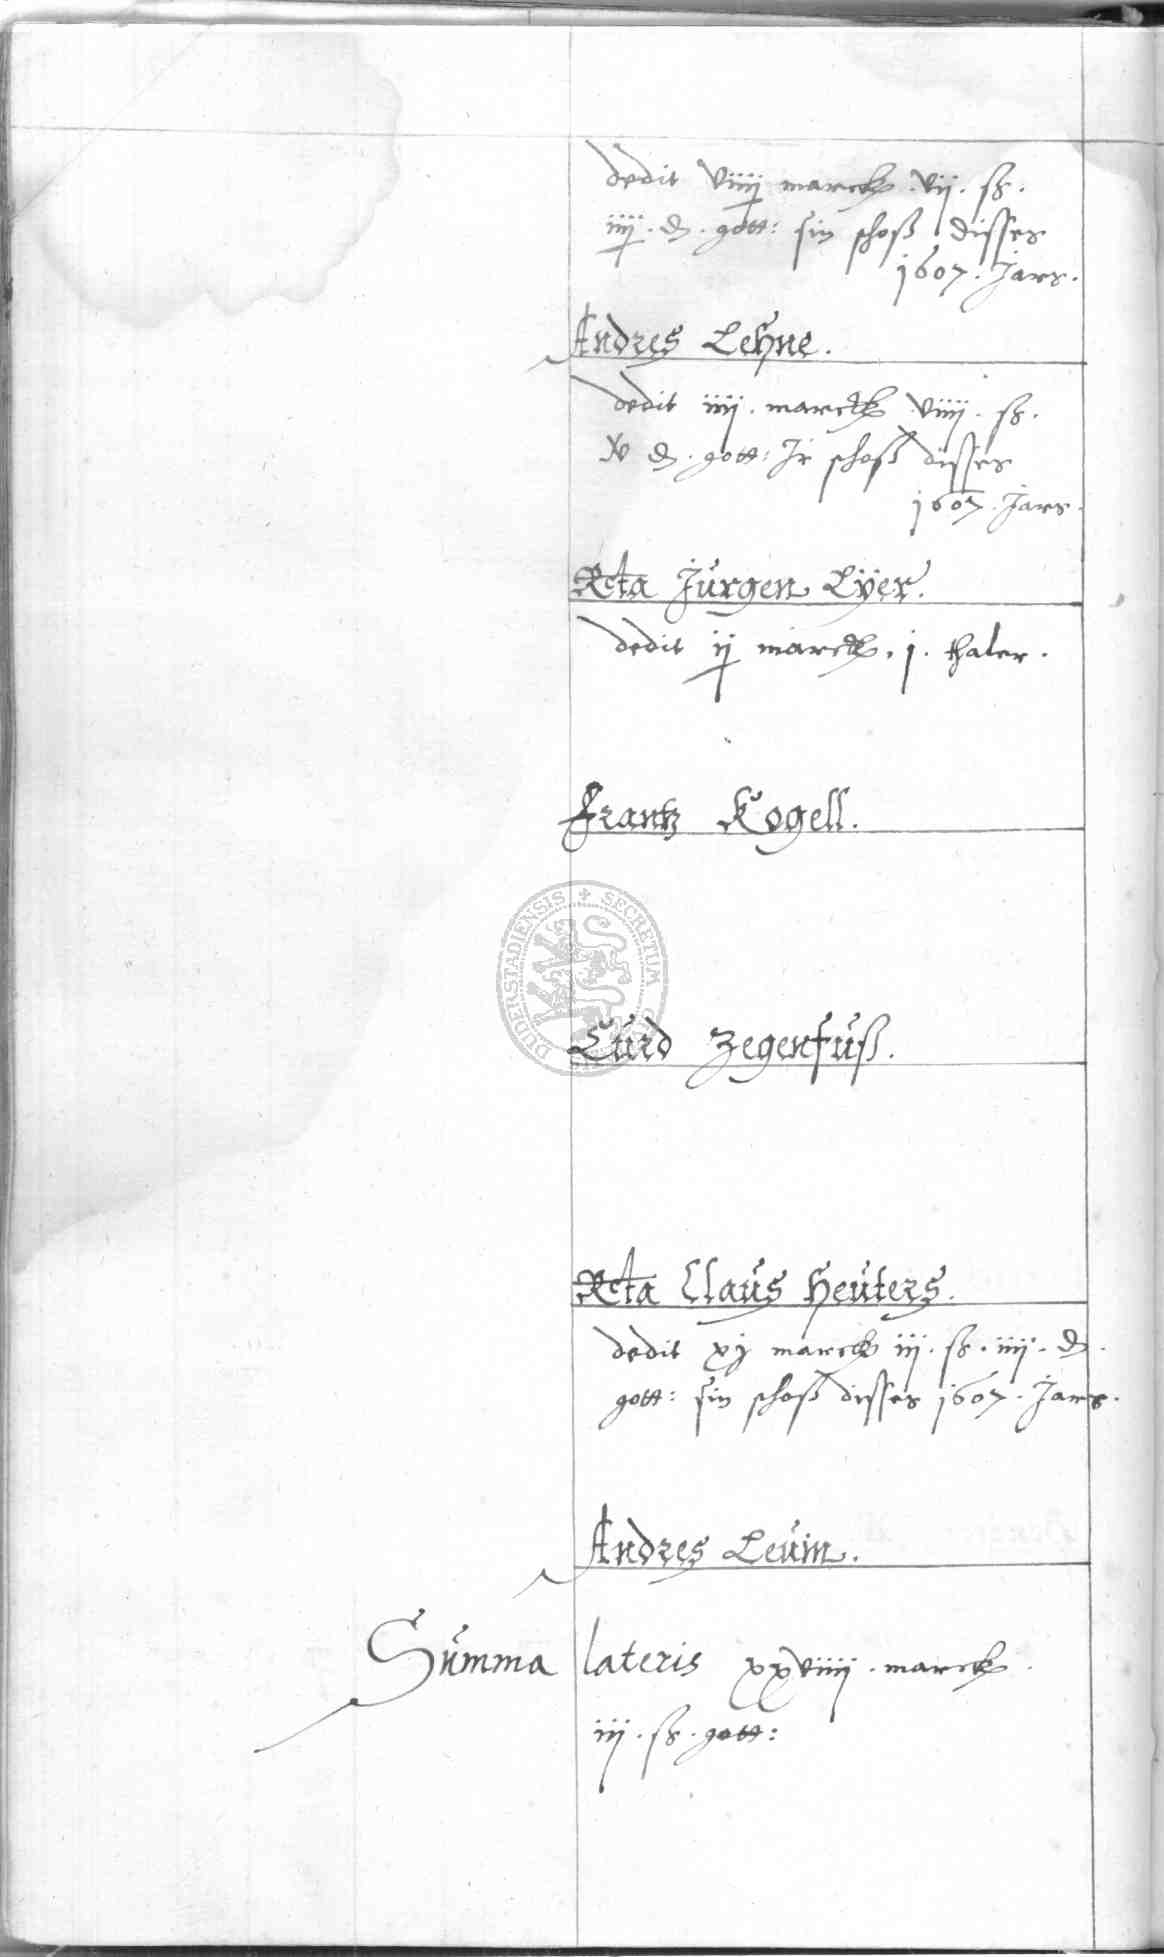 dedit viiij marck . vij . ß .
iiij . d . gott : sin schoß disses
1607 . Jars .
Andres Lehne .
dedit iiij . marck viiij . ß .
xv d . gott : Ir schoß disses
1607 . Jars .
Rcta Jürgen Lÿer .
dedit ij marck . j . thaler .
Frantz Kogell .
DUDERSTADIENSIS + SECRETUM
Curd Zegenfuß .
Rcta Claus Heuters .
dedit xj marck iij . ß . iiij . d .
gott : sin schoß disses 1607 . Jars .
Andres Leuin .
Summa lateris xxviiij . marck .
iij . ß . gott :